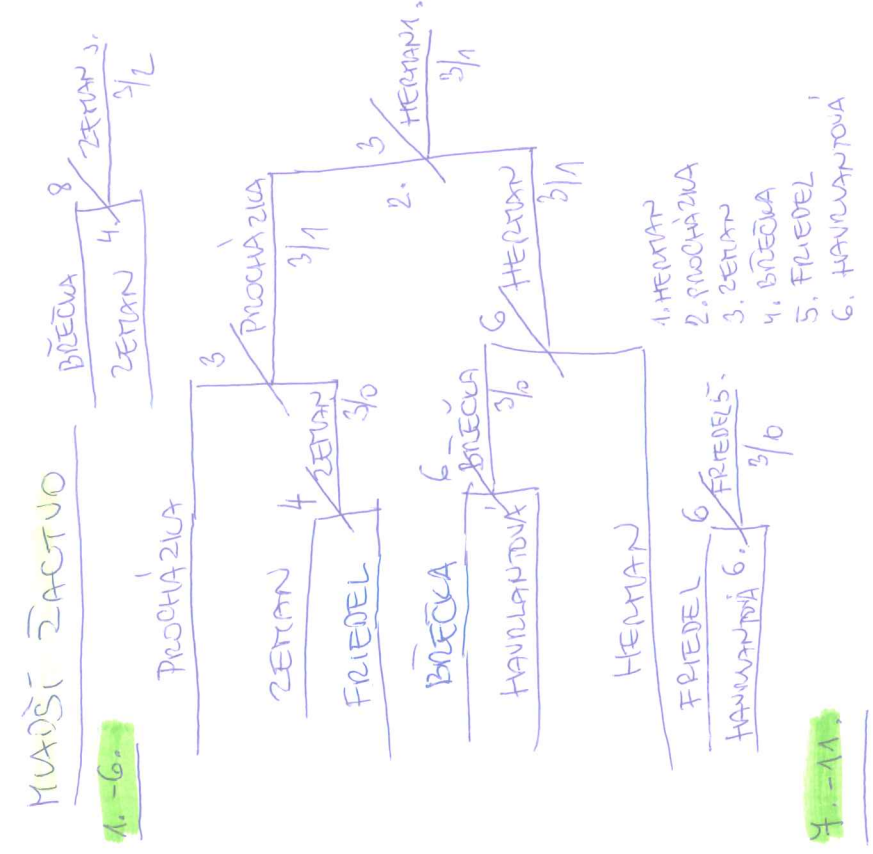 MLADŠÍ ŽACTVO
1.-6.
PROCHÁZKA
ZEMAN
FRIEDEL
BŘEČKA
HAVRLANTOVÁ
HERMAN
3
PROCHÁZKA
3/1
4
ZEMAN
3/0
6
BŘEČKA
3/0
6
HERMAN
3/1
2.
3
HERMAN 1.
3/1
BŘEČKA
ZEMAN
8
4.
ZEMAN 3.
3/2
FRIEDEL
HAVRLANTOVÁ 6.
6
FRIEDEL 5.
3/0
1. HERMAN
2. PROCHÁZKA
3. ZEMAN
4. BŘEČKA
5. FRIEDEL
6. HAVRLANTOVÁ
7.-11.